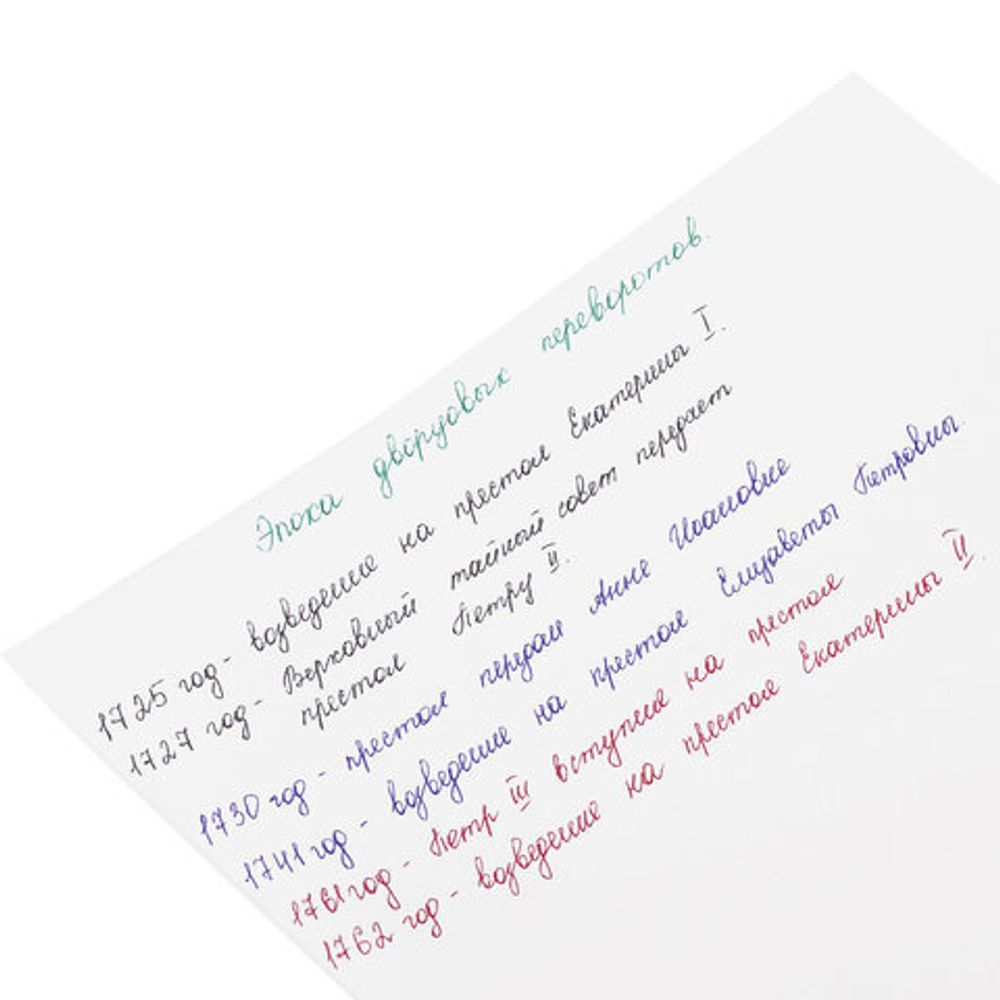 Эпоха дворцовых переворотов.
1725 год - возведение на престол Екатерины I.
1727 год - Верховный тайный совет передает
престол Петру II.
1730 год - престол передали Анне Иоановне
1741 год - возведение на престол Елизаветы Петровны.
1761 год - Петр III вступил на престол
1762 год - возведение на престол Екатерины II.